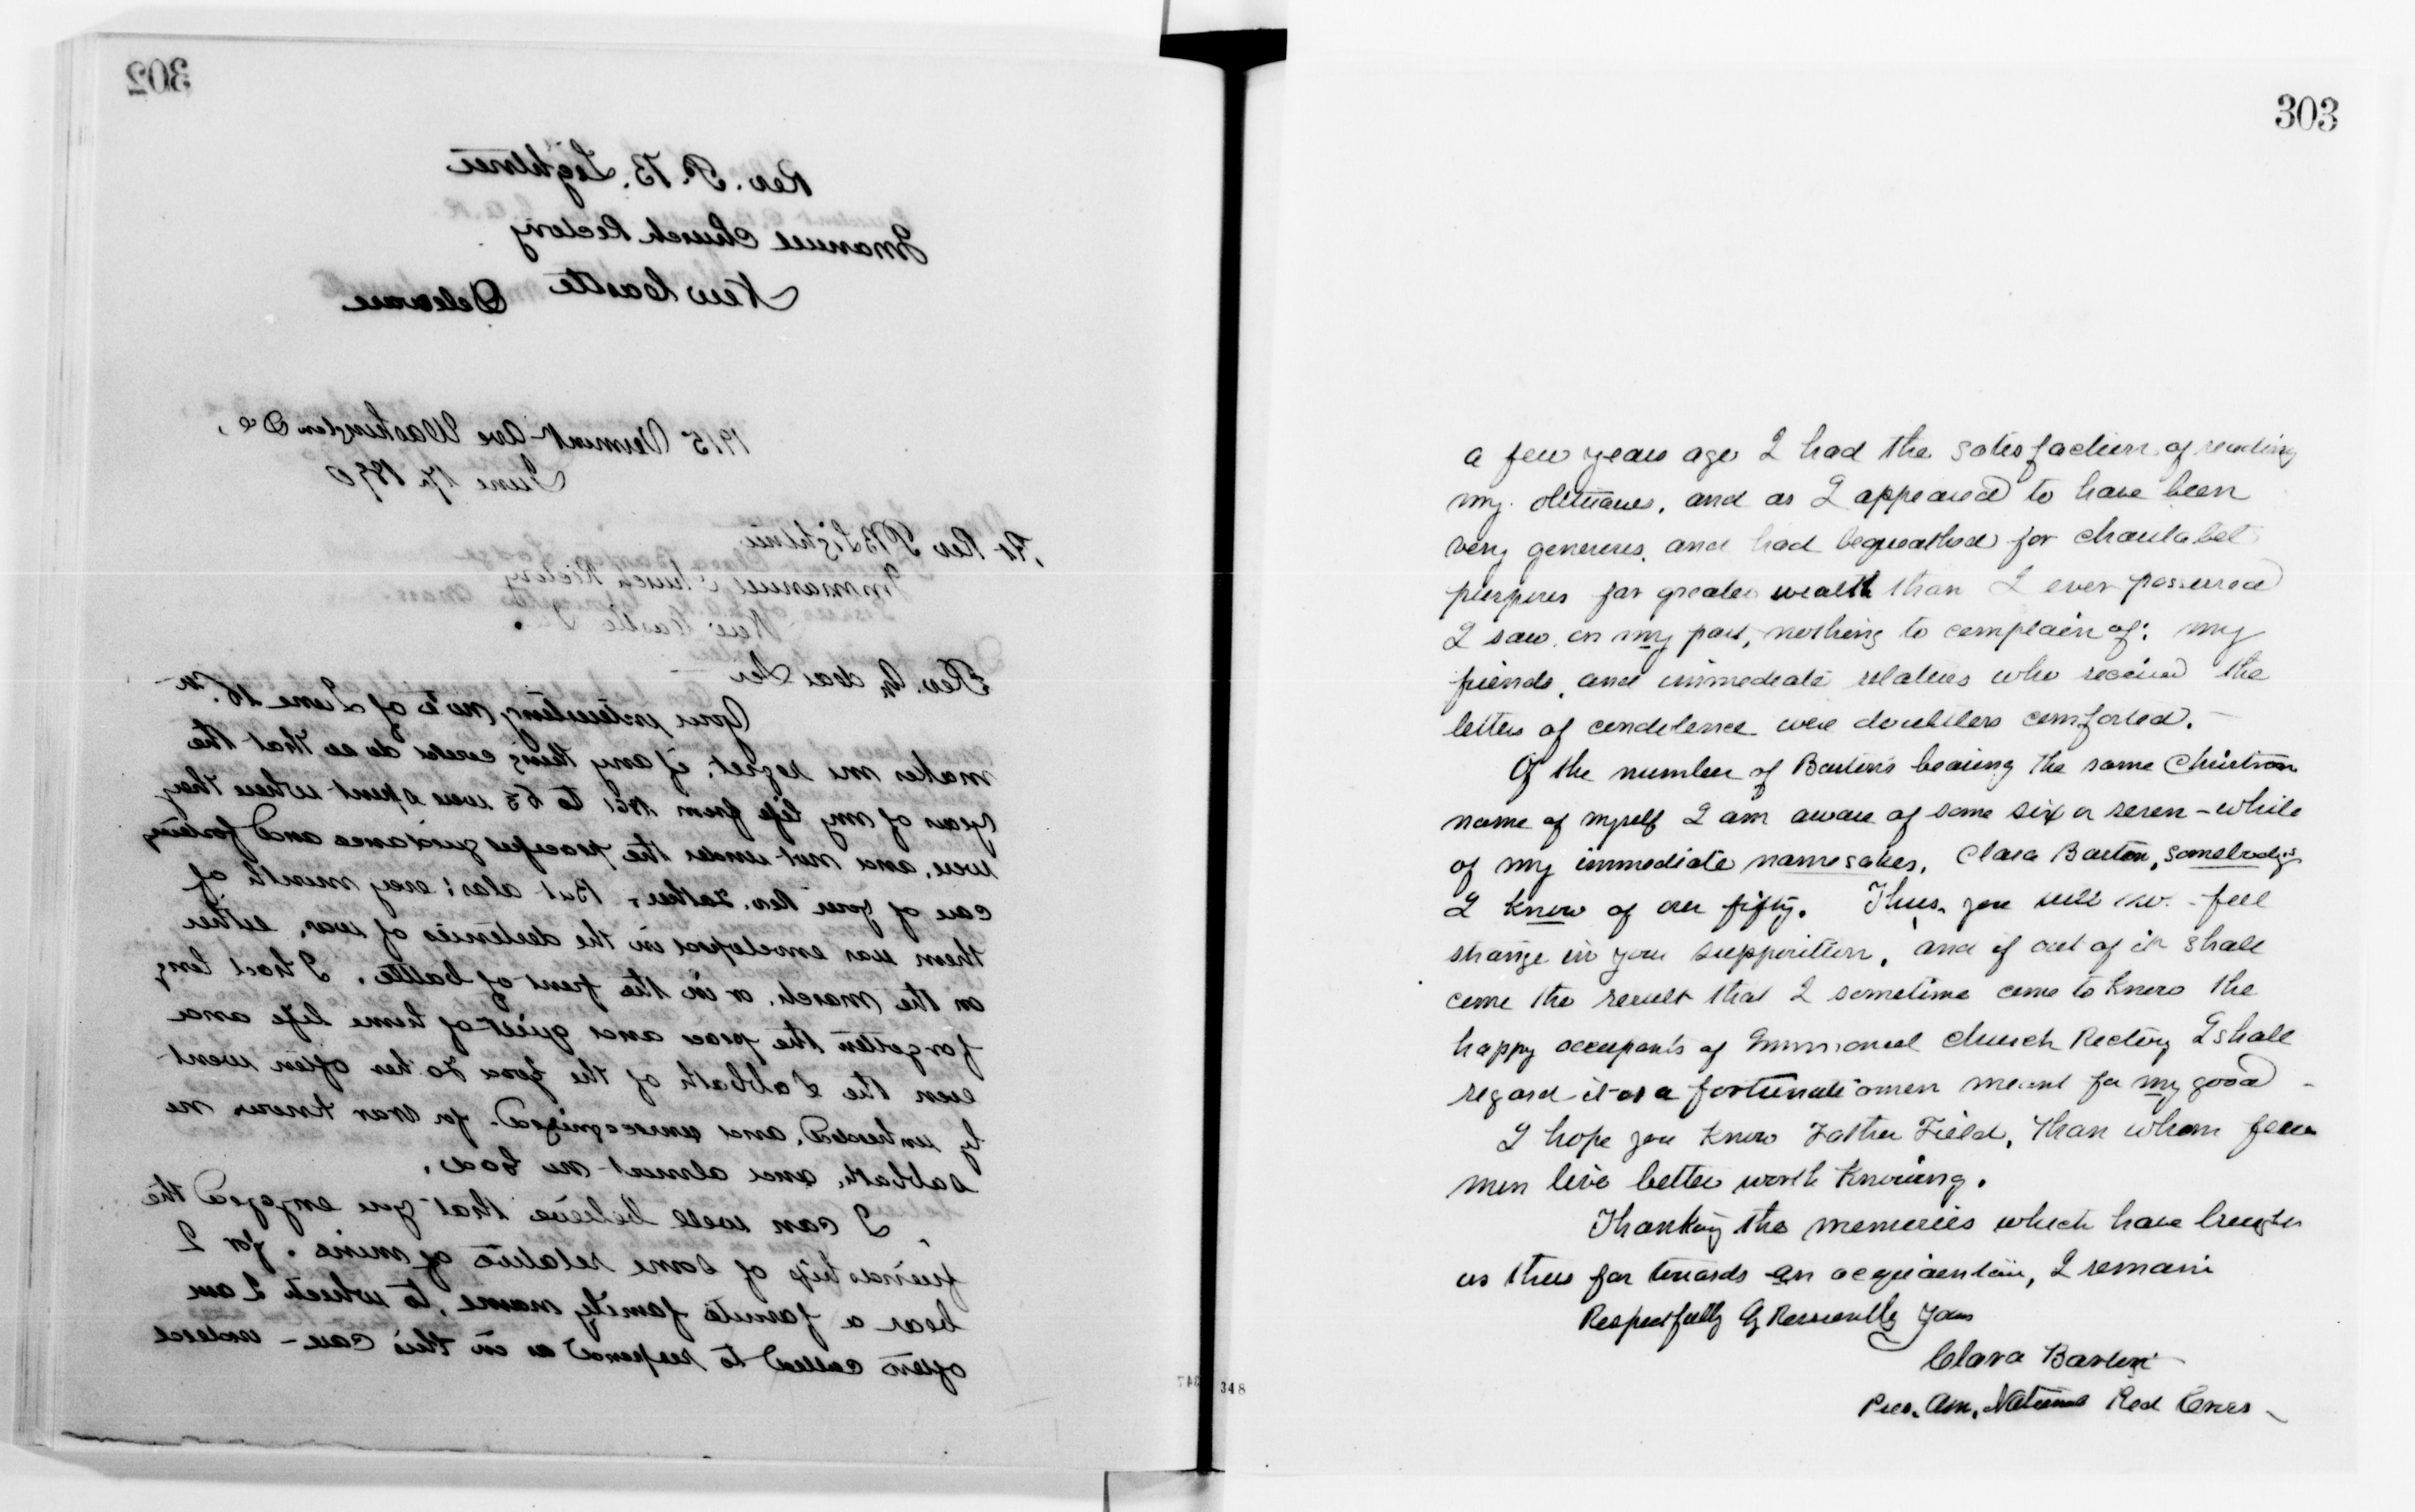 302
Rev. P. B. Lightner
Imanuel Church Rectory
New Castle Delaware
1915 Vermont Ave Washington D C,
June 17, 1890
To Rev P B Lightner
Immanuel Church Rectory
New Castle
Rev. & dear Sir
Your interesting note of June 16th
makes me regret, if any thing could do so that the
years of my life from 1861 to 65 were spent where they
were, and not under the peaceful guidance and fostering
care of your Rev. Father, But alas; every month of
them was enveloped in the destinies of war, either
on the march, or in the front of battle. I had long
forgotten the peace and quiet of home life and
even the Sabbath of the good Father often went
by unheeded, and unrecognized. for War knows no
sabbath, and almost no God.
I can well believe that you enjoyed the
friendship of some relative of mine. for I
bear a favorite family name, to which I am
often called to respond as in this case - indeed
347 348
303
a few years ago I had the satisfaction of reading
my obituaries, and as I appeared to have been
very generous, and had bequeathed for charitabel
purposes far greater wealth than I ever possessed
I saw on my part, nothing to complain of; my
friends, and immediate relatives who received the
letters of condolence were doubtless comforted. -
Of the number of Bartons bearing the same Christian
name of myself I am aware of some six or seven - while
of my immediate namesakes, Clara Barton, somebodys
I know of over fifty. Thus, you will not feel
strange in your supposition, and if out of it shall
come the result that I sometime come to know the
happy occupants of Immanuel Church Rectory I shall
regard it as a fortunate omen meant for my good -
I hope you know Father Field, than whom few
men live better worth knowing.
Thanking the memories which have brought
us thus far towards an acquaintance, I remain
Respectfully & Yours
Clara Barton
Pres. Am. National Red Cross -